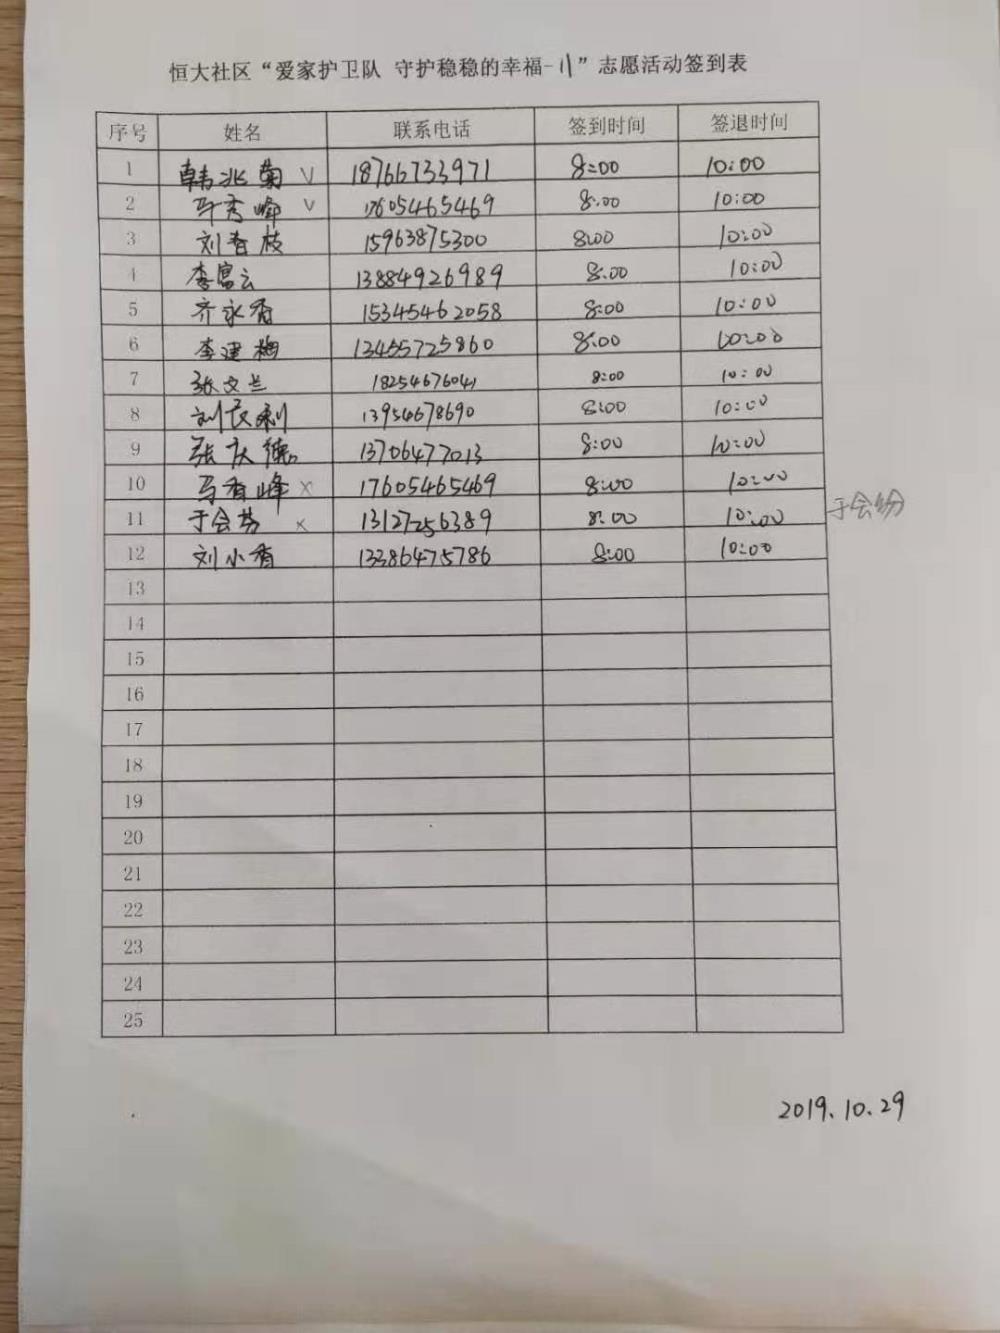 恒大社区“爱家护卫队 守护稳稳的幸福-11”志愿活动签到表
序号 姓名 联系电话 签到时间 签退时间
1 韩兆菊 √ 18766733971 8:00 10:00
2 马秀峰 √ 17605465469 8:00 10:00
3 刘春枝 15963875300 8:00 10:00
4 李富云 13884926989 8:00 10:00
5 齐永香 15345462058 8:00 10:00
6 李建梅 13455725860 8:00 10:00
7 张文兰 18254676041 8:00 10:00
8 刘民利 13954678690 8:00 10:00
9 张庆德 13706477013 8:00 10:00
10 马秀峰 × 17605465469 8:00 10:00
11 于会芬 × 13127256389 8:00 10:00 于会纷
12 刘小香 13386475786 8:00 10:00
13
14
15
16
17
18
19
20
21
22
23
24
25
2019.10.29